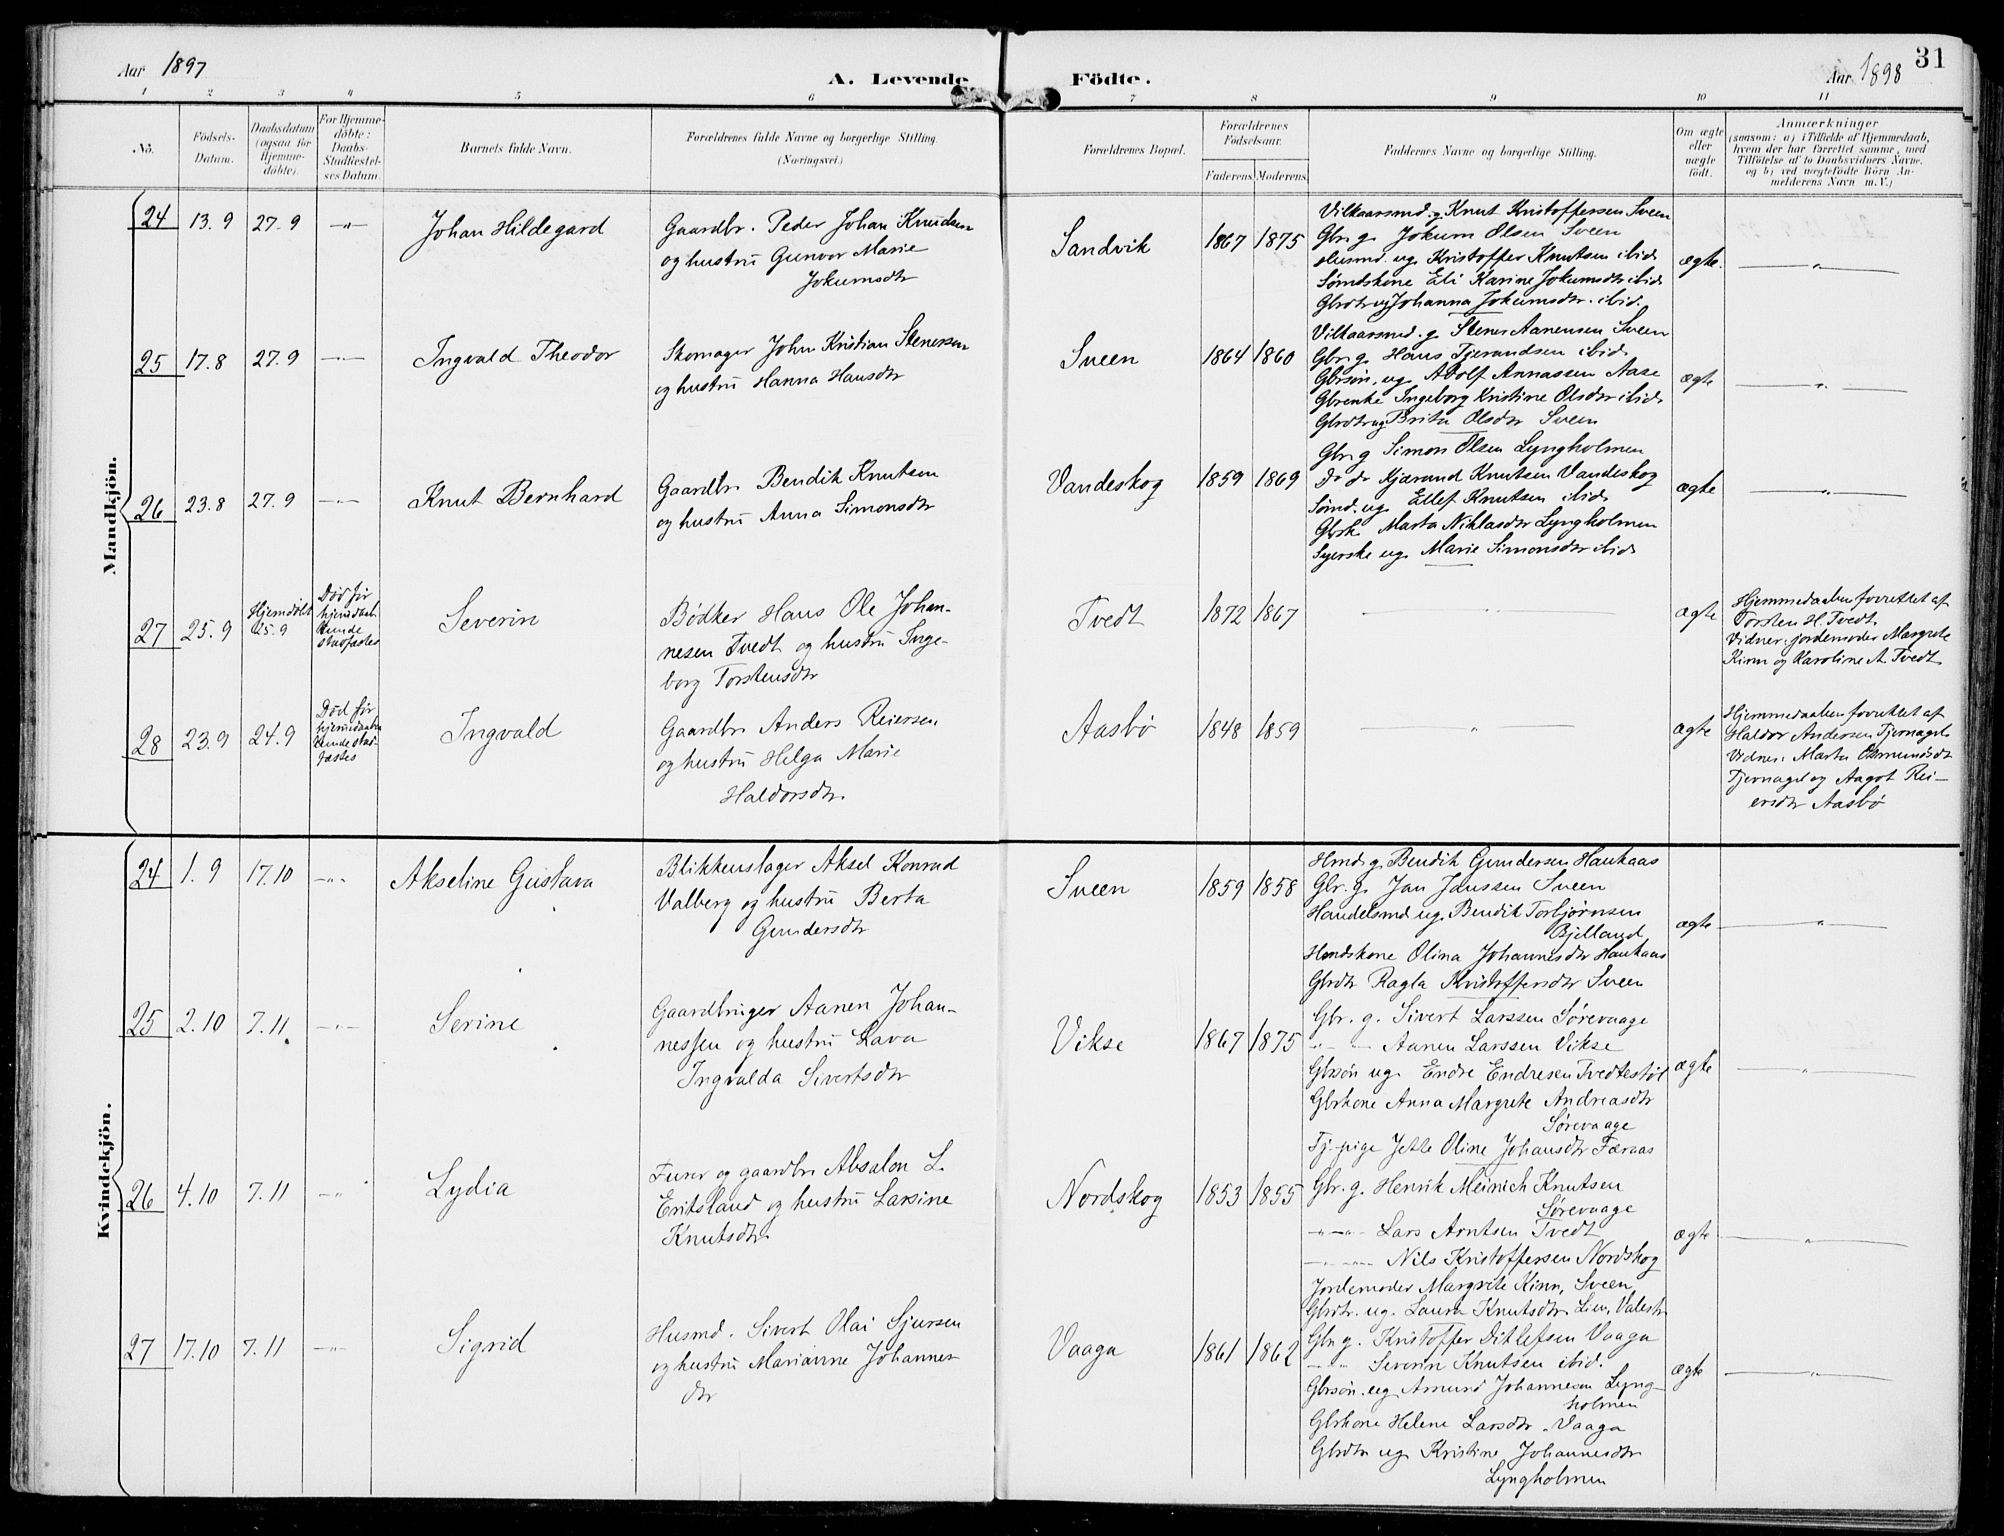 Aar 1897
A. Levende
Födte.
Aar 1898
31
1 2 3 4 5 6 7 8 9 10 11
No.
Födsels-
Datum.
Daabsdatum
(ogsaa for
Hjemme-
döbte).
For Hjemme-
döbte:
Daabs-
Stadfæstel-
ses Datum.
Barnets fulde Navn.
Forældrenes fulde Navne og borgerlige Stilling.
(Næringsvei.)
Forældrenes Bopæl.
Forældrenes
Födselsaar.
Faderens. Moderens.
Faddernes Navne og borgerlige Stilling.
Om ægte
eller
uægte
födt.
Anmærkninger
(saasom: a) i Tilfælde af Hjemmedaab,
hvem der har forrettet samme, med
Tilföielse af to Daabsvidners Navne.
og b) ved uægtefödte Börn An-
melderens Navn m. V.)
Mandkjön.
24 13.9 27.9 -"-
Johan Hildegard
Gaardbr. Peder Johan Knudsen
og hustru Gunvor Marie
Jokumsdtr
Sandvik
1867 1875
Vilkaarsmd. g. Knut Kristoffersen Sveen
Gbr. g. Jokum Olsen Sveen
Husmd. ug. Kristoffer Knutsen ibid.
Sømdskone Eli Karine Jokumsdtr ibid
Gbrdtr ug Johanna Jokumsdtr. ibid.
ægte.
"
25 17.8 27.9 -"-
Ingvald Theodor
Skomager John Kristian Stenersen
og hustru Hanna Hansdtr
Sveen
1864 1860
Vilkaarsmd. g. Stener Aanensen Sveen
Gbr. g. Hans Tjerandsen ibid.
Gbrsøn. ug. Adolf Annassen Aase
Gbrenke Ingeborg Kristine Olsdtr ibid.
Gbrdtr ug Brita Olsdtr Sveen
ægte
"
26 23.8 27.9 -"-
Knut Bernhard
Gaardbr. Bendik Knutsen
og hustru Anna Simonsdtr
Vandeskog
1859 1869
Gbr. g. Simon Olsen Lyngholmen
Do do Kjærand Knutsen Vandeskog
Sømd. ug. Ellef Knutsen ibid.
Gbrk. Marta Niklasdtr Lyngholmen
Syerske ug. Marie Simonsdtr ibid
ægte
"
27 25.9
Hjemdøbt
25.9
Død før
hjemdaab
kunde
stadfæstes
Severin
Bødker Hans Ole Johan-
nesen Tvedt og hustru Inge-
borg Torstensdtr
Tvedt
1872 1867
"
ægte
Hjemmedaaben forrettet af
Torsten H. Tvedt.
Vidner: jordemoder Margrete
Kinn og Karoline A. Tvedt
28 23.9 24.9
Død før
hjemdaaben
kunde stad-
fæstes
Ingvald
Gaardbr. Anders Reiersen
og hustru Helga Marie
Haldorsdtr.
Aasbø
1848 1859
"
ægte
Hjemmedaaben forrettet af
Haldor Andersen Tjernagel
Vidner: Marta Osmundsdtr
Tjernagel og Aagot Rei-
ersdtr Aasbø
Kvindekjön.
24 1.9 17.10 -"-
Akseline Gustava
Blikkenslager Aksel Konrad
Valberg og hustru Berta
Gundersdtr
Sveen
1859 1858
Hmd. g. Bendik Gundersen Haukaas
Gbr. g. Jan Janssen Sveen
Handelsmd ug. Bendik Torbjørnsen
Bjelland
Hmdskone Olina Johannesdtr Haukaas
Gbrdtr Ragla Kristoffersdtr Sveen
ægte
"
25 2.10 7.11 -"-
Serine
Gaardbruger Aanen Johan-
nessen og hustru Lava
Ingvalda Sivertsdtr
Vikse
1867 1875
Gbr. g. Sivert Larssen Sørevaage
" " Aanen Larssen Vikse
Gbrsøn ug. Endre Endresen Tvedtestøl
Gbrkone Anna Margrete Andreasdtr
Sørevaage
Tj. pige Jetle Oline Johansdtr Færaas
ægte
"
26 4.10 7.11 -"-
Lydia
Furer og gaardbr. Absalon L.
Eritsland og hustru Larsine
Knutsdtr.
Nordskog
1853 1855
Gbr. g. Henrik Meinich Knutsen
Sørevaage
" " Lars Arntsen Tvedt
" " Nils Kristoffersen Nordskog
Jordemoder Margrete Kinn, Sveen
Gbrdtr. ug. Laura Knutsdtr Lien, Valestr.
ægte
"
27 17.10 7.11 -"-
Sigrid
Husmd. Sivert Olai Sjursen
og hustru Marianne Johannes-
dtr
Vaaga
1861 1862
Gbr. g. Kristoffer Ditlefsen Vaaga
" " Severin Knutsen ibid.
Gbrsøn. ug Amund Johannesen Lyng-
holmen
Gbrkone Helene Larsdtr. Vaaga
Gbrdtr ug. Kristine Johannesdtr
Lyngholmen
ægte
"